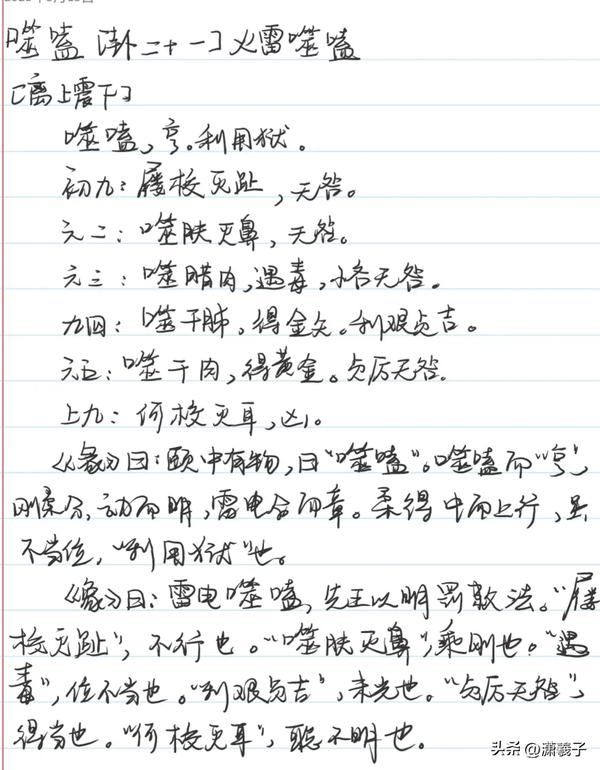 噬嗑 [卦二十一] 火雷噬嗑
[离上震下]
噬嗑，亨。利用狱。
初九：屦校灭趾，无咎。
六二：噬肤灭鼻，无咎。
六三：噬腊肉，遇毒，小吝无咎。
九四：噬干胏，得金矢。利艰贞吉。
六五：噬干肉，得黄金。贞厉无咎.
上九：何校灭耳，凶。
《彖》曰：颐中有物，曰“噬嗑”。噬嗑而“亨”，
刚柔分，动而明，雷电合而章。柔得中而上行，虽
不当位，“利用狱”也。
《象》曰：雷电噬嗑，先王以明罚敕法。“屦
校灭趾”，不行也。“噬肤灭鼻”，乘刚也。“遇
毒”，位不当也。“利艰贞吉”，未光也。“贞厉无咎”，
得当也。“何校灭耳”，聪不明也。
头条@潇羲子